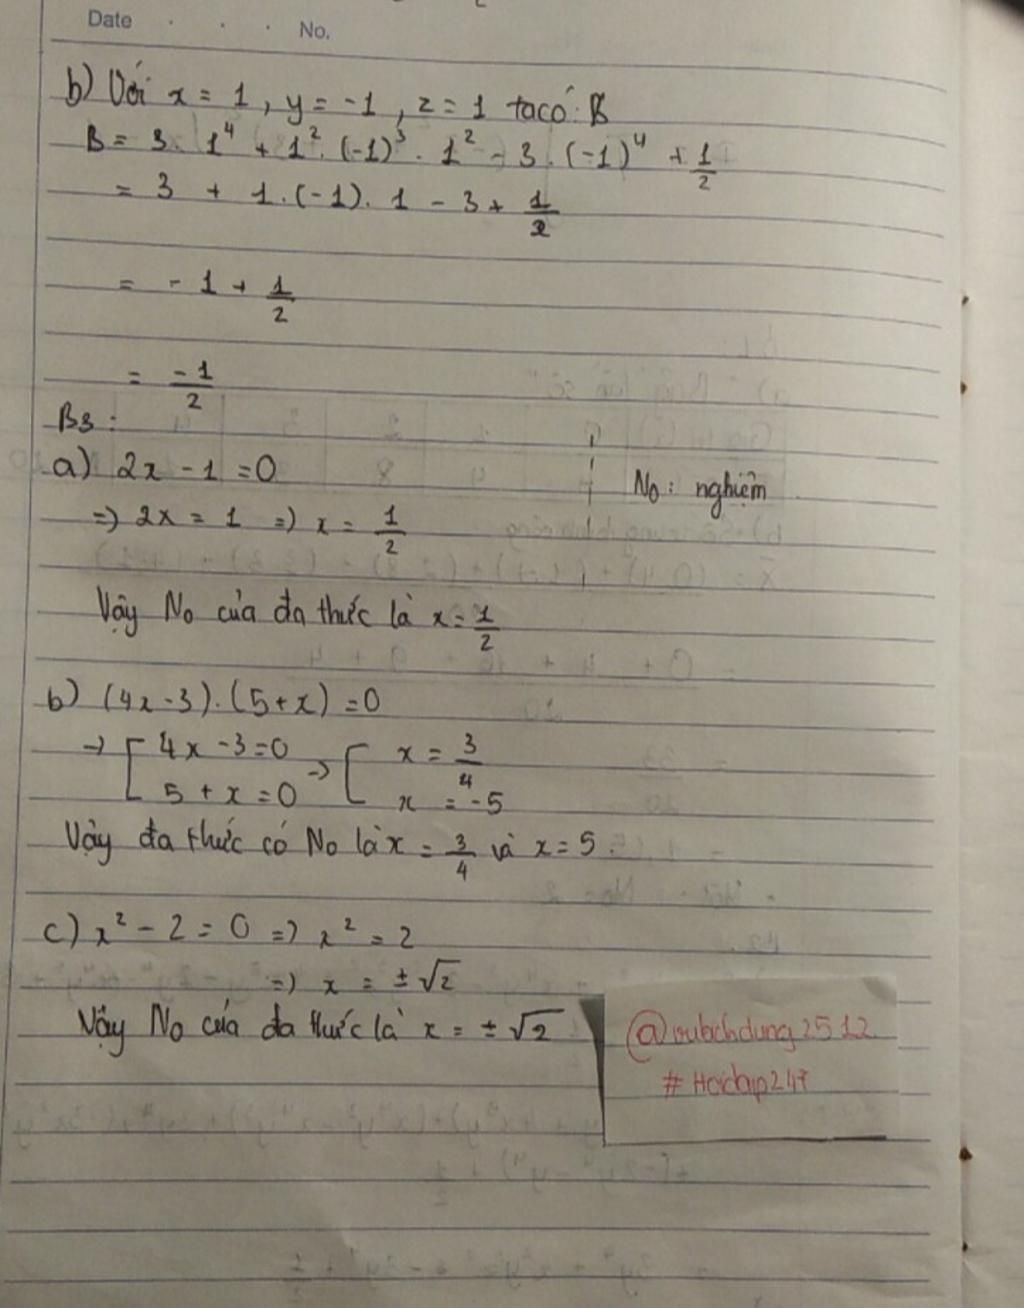 Date . . . No.
b) Với x = 1, y = -1, z = 1 ta có: B
B = 3. 1⁴ + 1². (-1)³. 1² - 3. (-1)⁴ + 1/2
= 3 + 1.(-1). 1 - 3 + 1/2
= - 1 + 1/2
= -1/2
B3:
a) 2x - 1 = 0
No: nghiệm
=> 2x = 1 => x = 1/2
Vậy No của đa thức là x = 1/2
b) (4x - 3).(5 + x) = 0
→ [ 4x - 3 = 0 → [ x = 3/4
5 + x = 0 x = -5
Vậy đa thức có No là x = 3/4 và x = 5.
c) x² - 2 = 0 => x² = 2
=> x = ±√2
Vậy No của đa thức là x = ±√2
@vubichdung2512
#Hoidap247